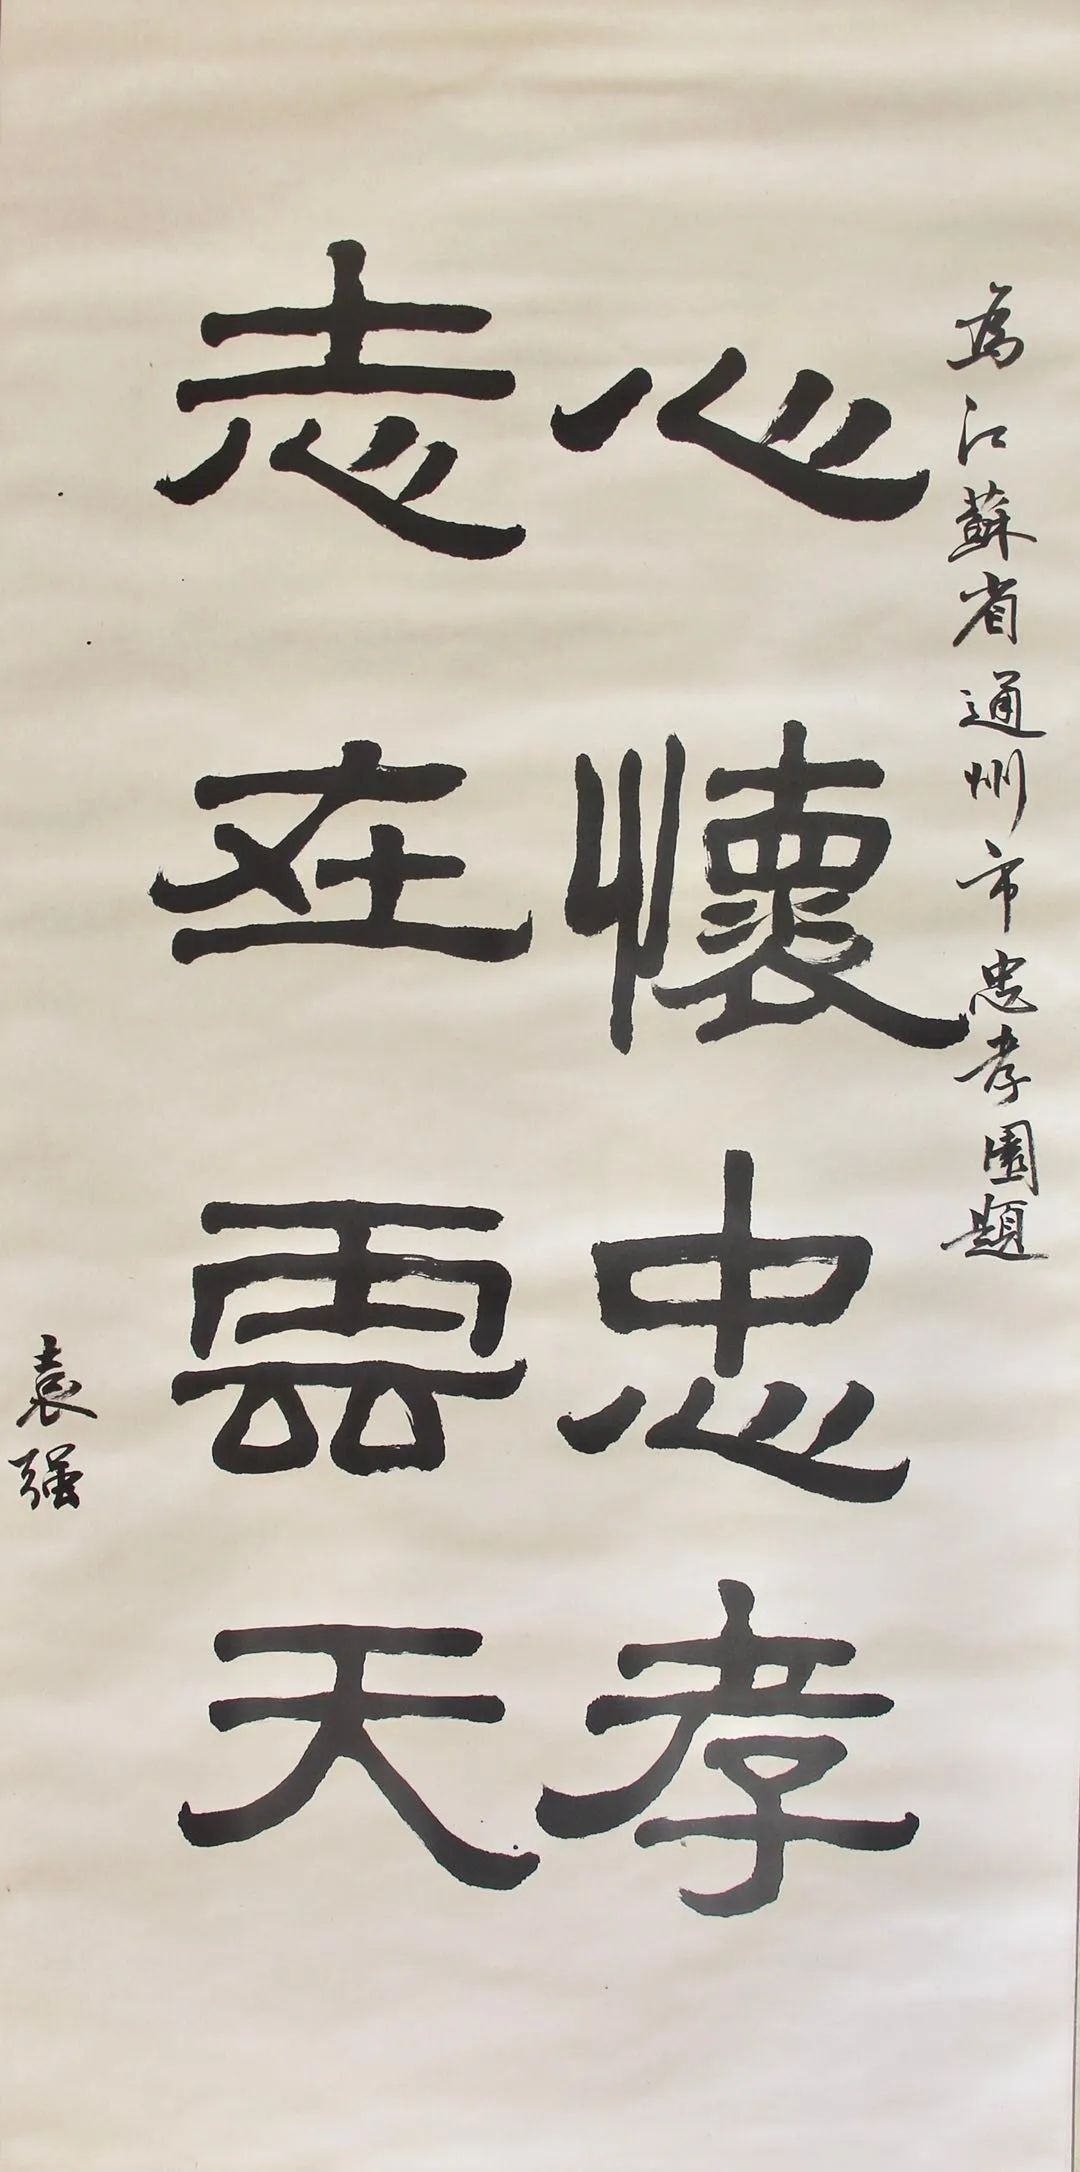 為江蘇省通州市忠孝園題
心懷忠孝
志在雲天
袁强